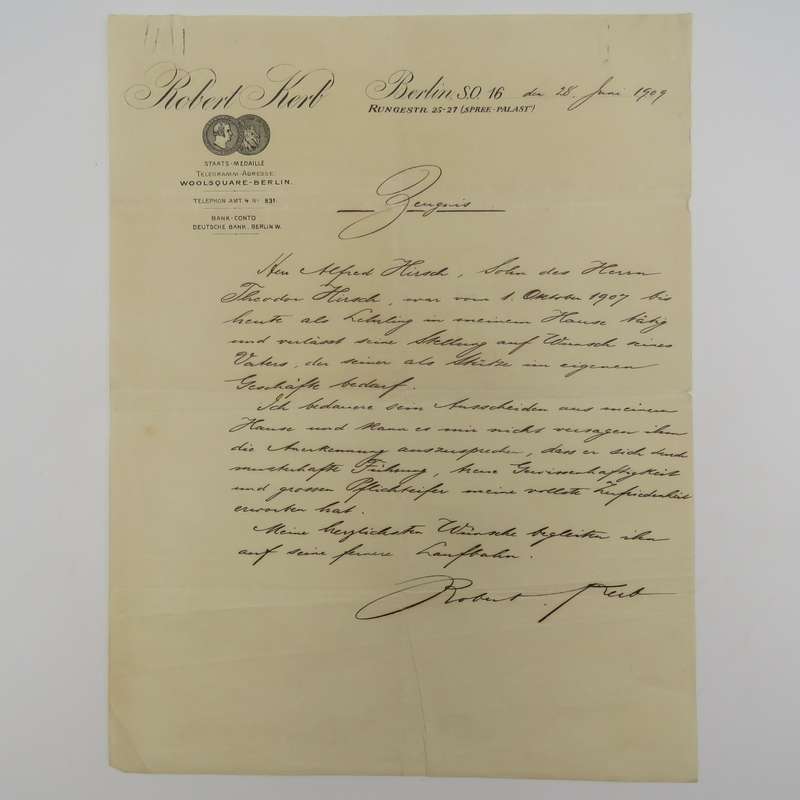 Robert Kerb
Berlin, S.O. 16 den 28. Juni 1909
RUNGESTR. 25-27 (SPREE-PALAST)
STAATS-MEDAILLE
TELEGRAMM-ADRESSE:
WOOLSQUARE-BERLIN.
TELEPHON AMT 4 No 831.
BANK-CONTO
DEUTSCHE BANK, BERLIN W.
Zeugnis
Herr Alfred Hirsch, Sohn des Herrn
Theodor Hirsch, war vom 1. Oktober 1907 bis
heute als Lehrling in meinem Hause tätig
und verlässt seine Stellung auf Wunsch seines
Vaters, der seiner als Stütze im eigenen
Geschäfte bedarf.
Ich bedauere sein Ausscheiden aus meinem
Hause und kann es mir nicht versagen ihm
die Anerkennung auszusprechen, dass er sich durch
musterhafte Führung, treue Gewissenhaftigkeit
und grossen Pflichteifer meine vollste Zufriedenheit
erworben hat.
Meine herzlichsten Wünsche begleiten ihn
auf seine fernere Laufbahn.
Robert Kerb